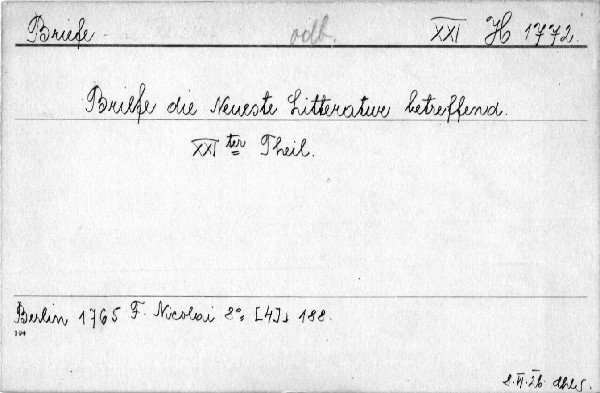 Briefe odb. XXI H 1772.
Briefe die Neueste Litteratur betreffend.
XXI ter Theil.
Berlin 1765 F. Nicolai 8° [4], 188.
194